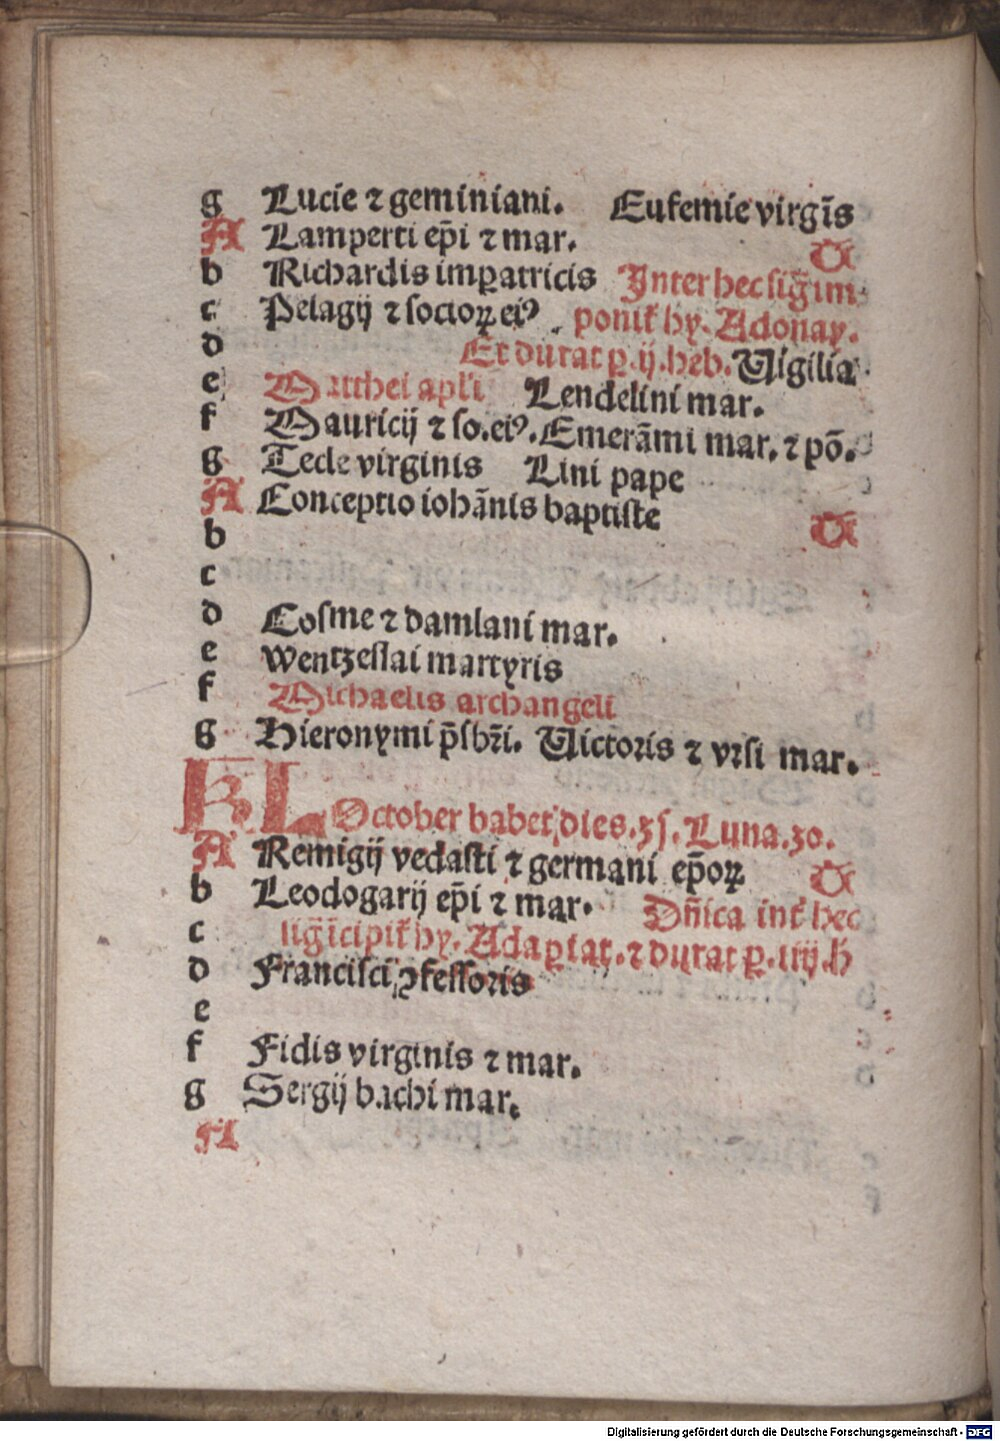 g Lucie ⁊ geminiani. Eufemie virgīs
A Lamperti ep̄i ⁊ mar.
b Richardis imꝑatricis Inter hec siḡ im
c Pelagij ⁊ socioꝝ eiꝰ ponit̄ hy. Adonay.
d Et durat ꝑ .ij. heb. Uigilia
e Mathei apl̄i Lendelini mar.
f Mauricij ⁊ so. eiꝰ. Emerāmi mar. ⁊ pō.
g Tecle virginis Lini pape
A Conceptio iohānis baptiste
b
c
d Cosme ⁊ damiani mar.
e wentzeslai martyris
f Michaelis archangeli
g Hieronymi p̄sbr̄i. Uictoris ⁊ vrsi mar.
KL October habet dies.3ı. Luna.30.
A Remigij vedasti ⁊ germani ep̄oꝝ
b Leodogarij ep̄i ⁊ mar. Dn̄ica int̄ hec
c sig̅ īcipit̄ hy. Adaꝑiat. ⁊ durat ꝑ .iiij. h̄
d Francisci ꝯfessoris
e
f Fidis virginis ⁊ mar.
g Sergij bachi mar.
A
Digitalisierung gefördert durch die Deutsche Forschungsgemeinschaft - DFG